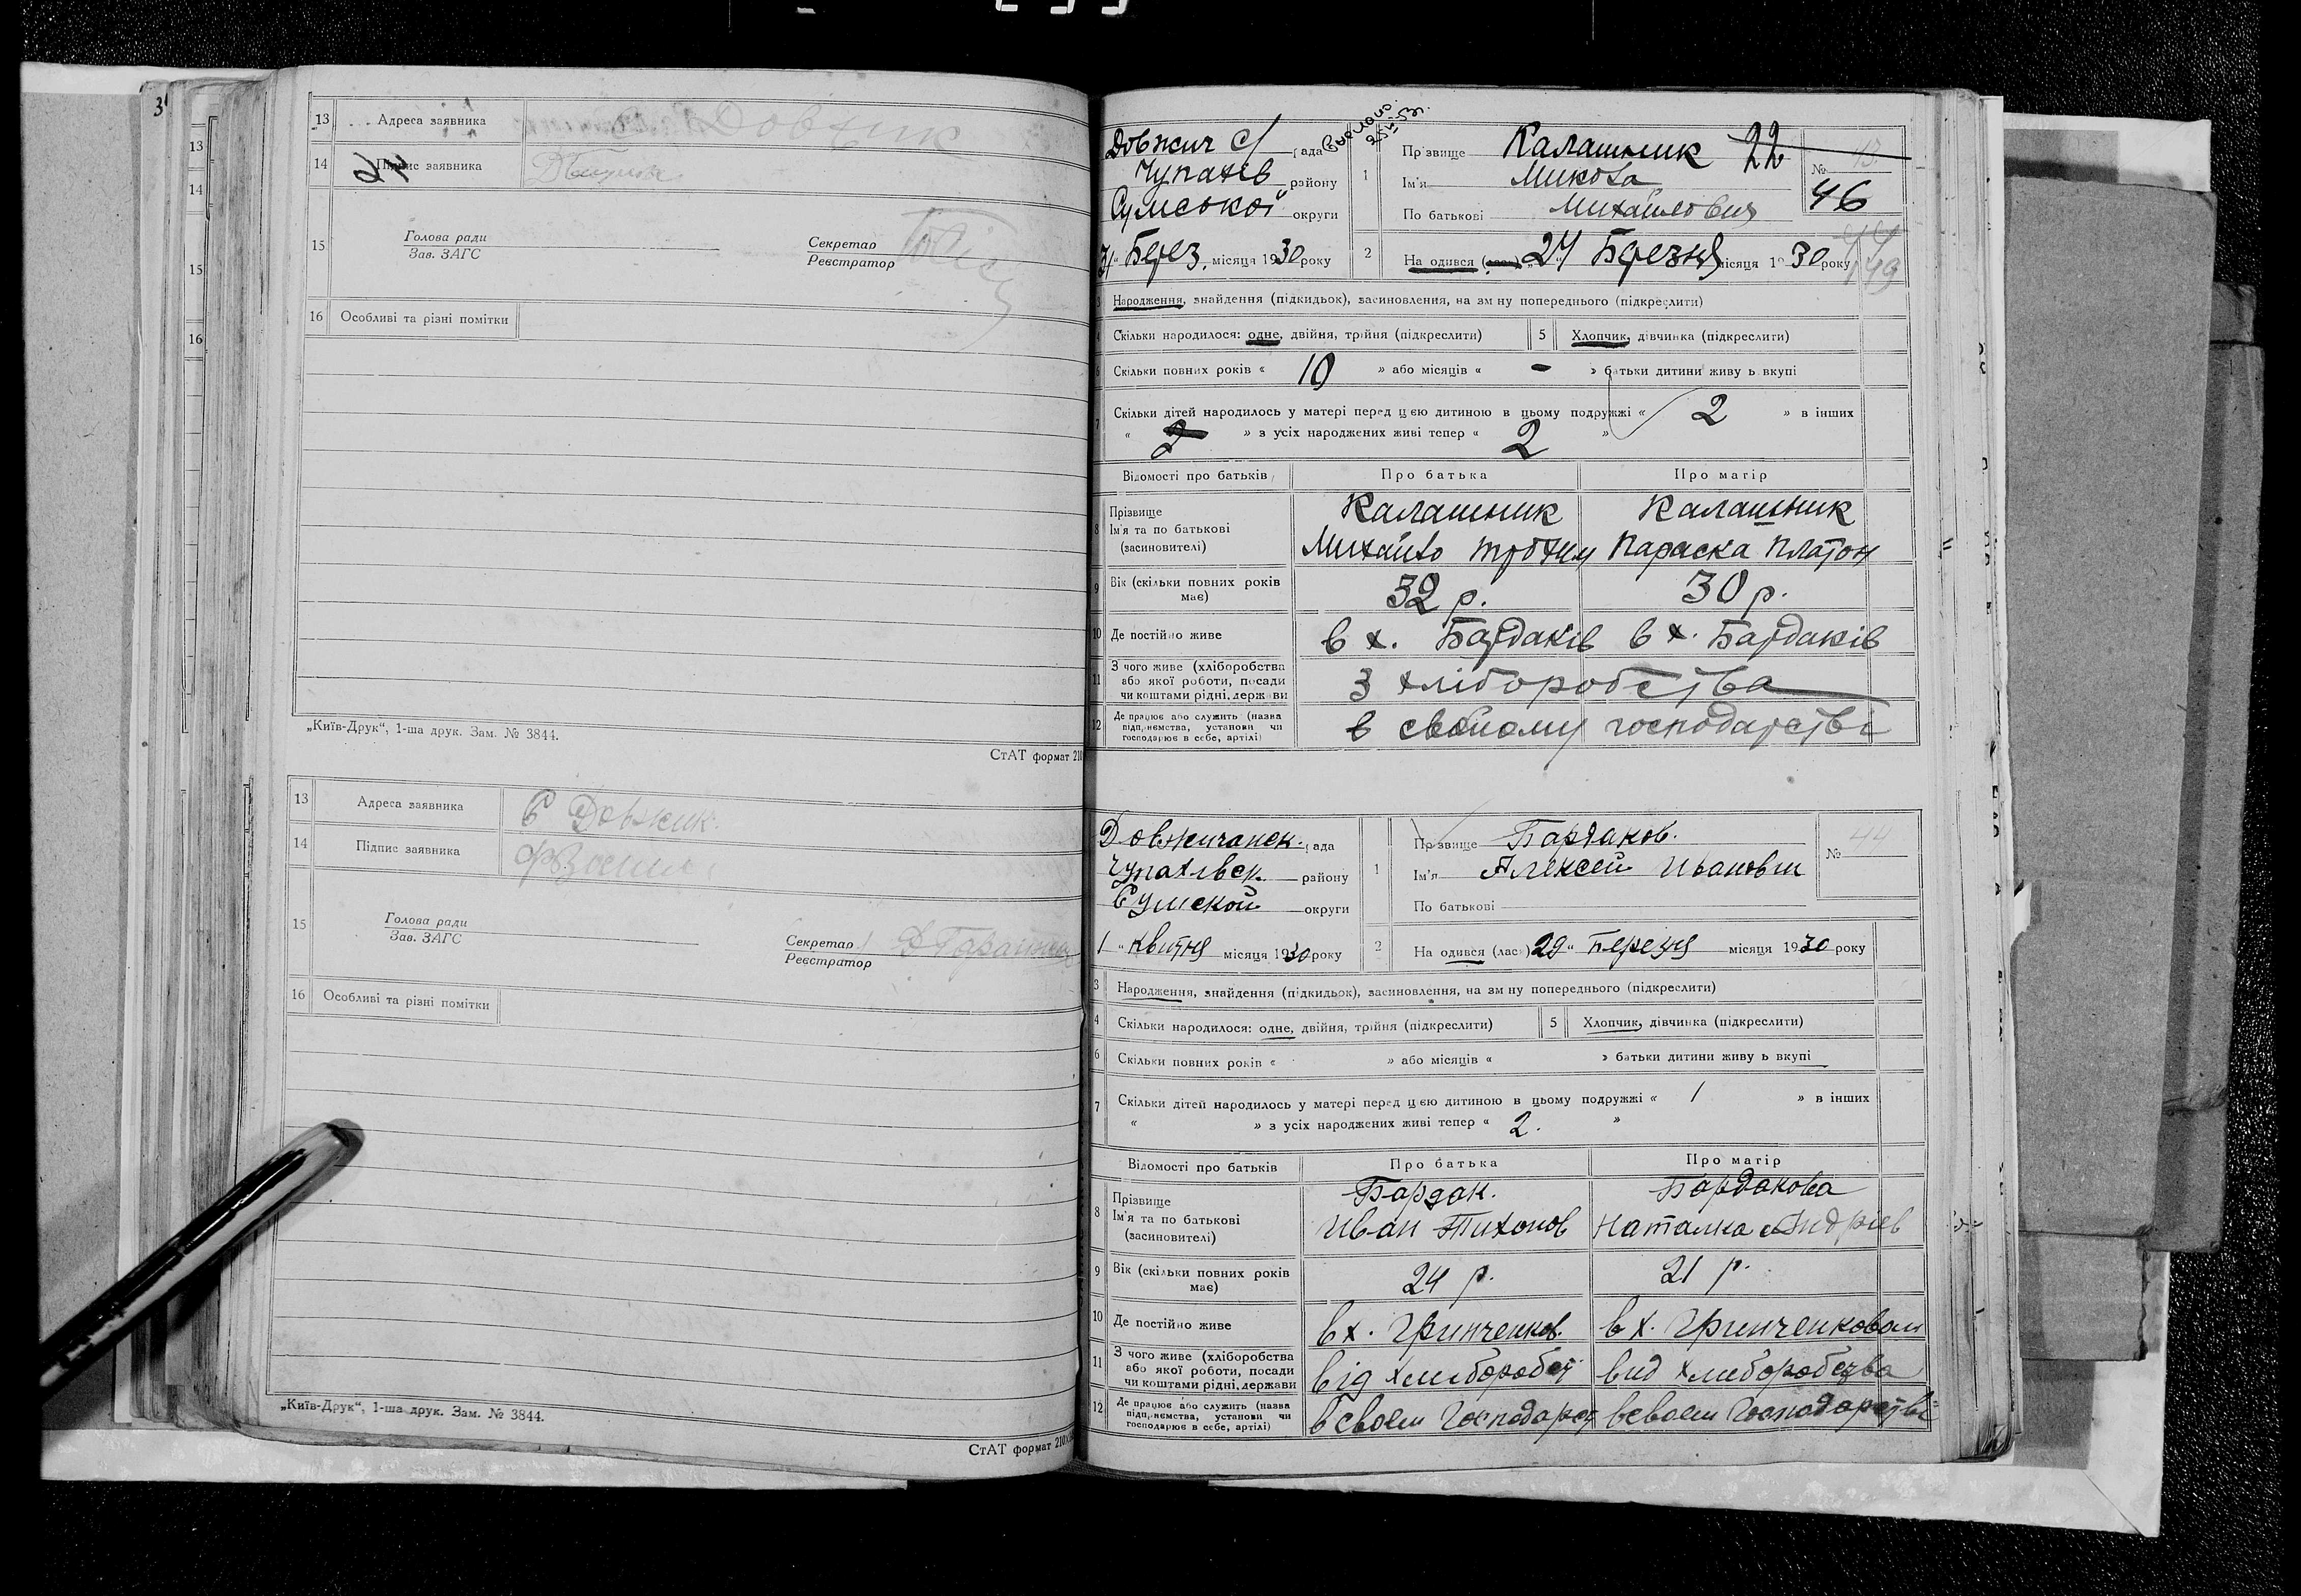 13 Адреса заявника Довжик
14 Підпис заявника
15 Голова ради
Зав. ЗАГС
Секретар
Реєстратор
16 Особливі та різні помітки
„Київ-Друк“, 1-ша друк. Зам. № 3844.
СтАТ формат 210
13 Адреса заявника С Довжик.
14 Підпис заявника
15 Голова ради
Зав. ЗАГС
Секретар
Реєстратор
16 Особливі та різні помітки
„Київ-Друк“, 1-ша друк. Зам. № 3844.
СтАТ формат 210
Довжич с/ рада
Чупахів району
Сумської округи
31 „ Берез. місяця 1930 року
1 Прізвище Калашник 22
Ім'я Микола
По батькові Михайлович
№ 46
2 На одився (лась) „27“ Березня місяця 1930 року
3 Народження, знайдення (підкидьок), засиновлення, на зм ну попереднього (підкреслити)
4 Скільки народилося: одне, двійня, трійня (підкреслити) 5 Хлопчик, дівчинка (підкреслити)
6 Скільки повних років « 10 » або місяців « - » батьки дитини живу ь вкупі
7 Скільки дітей народилось у матері перед цією дитиною в цьому подружжі « 2 » в інших
« 2 » з усіх народжених живі тепер « 2 »
Відомості про батьків Про батька Про матір
8 Прізвище Калашник Калашник
Ім'я та по батькові
(засиновителі) Михайло Трохим Параска Платон
9 Вік (скільки повних років має) 32 р. 30 р.
10 Де постійно живе в х. Бардаків в х. Бардаків
11 З чого живе (хліборобства
або якої роботи, посади
чи коштами рідні, держави
З хліборобства
12 Де працює або служить (назва
підприємства, установи чи
господарює в себе, артілі)
в свойому господарстві
Довжичанск. рада
Чупахівск. району
Сумской округи
1 „ Квітня місяця 1930 року
1 Прізвище Бардаков.
Ім'я Алексей Иванович
По батькові
№ 44
2 На одився (лась) 29 “ Березня місяця 1930 року
3 Народження, знайдення (підкидьок), засиновлення, на зм ну попереднього (підкреслити)
4 Скільки народилося: одне, двійня, трійня (підкреслити) 5 Хлопчик, дівчинка (підкреслити)
6 Скільки повних років « » або місяців « » батьки дитини живу ь вкупі
7 Скільки дітей народилось у матері перед цією дитиною в цьому подружжі « 1 » в інших
« » з усіх народжених живі тепер « 2. »
Відомості про батьків Про батька Про матір
8 Прізвище Бардак. Бардакова
Ім'я та по батькові
(засиновителі) Иван Тихонов Наталка Андріев
9 Вік (скільки повних років має) 24 р. 21 р.
10 Де постійно живе в х. Гринченков. в х. Гринченковом
11 З чого живе (хліборобства
або якої роботи, посади
чи коштами рідні, держави
від хлиборобст вид хлиборобства
12 Де працює або служить (назва
підприємства, установи чи
господарює в себе, артілі)
в своем Господарст в своем Господарстві